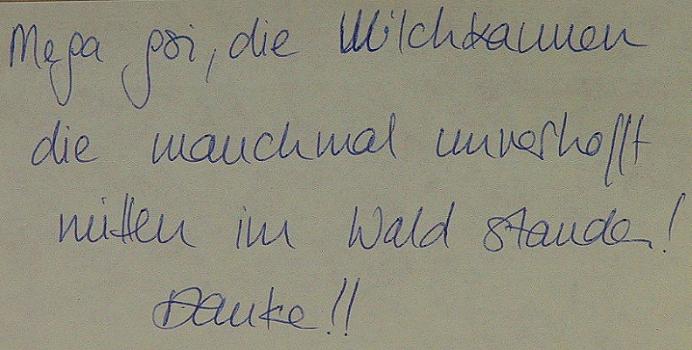 Mega gsi, die Milchkannen
die manchmal unverhofft
mitten im Wald standen!
Danke!!